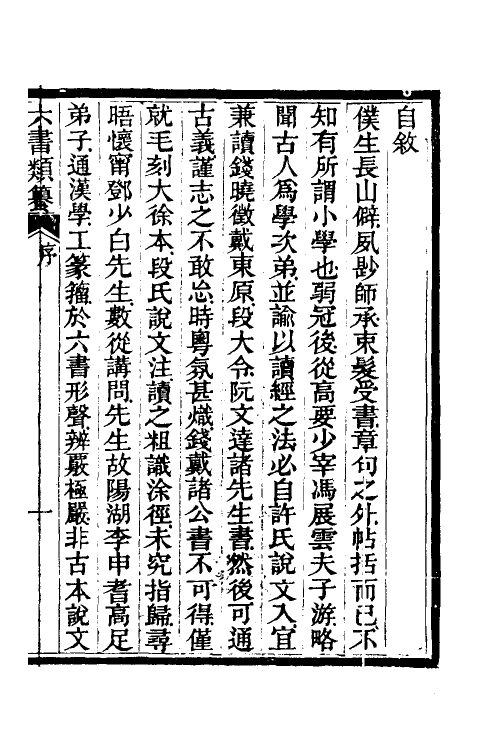 自敘
僕生長山僻夙尟師承束髮受書章句之外帖括而已不
知有所謂小學也弱冠後從高要少宰馮展雲夫子游略
聞古人爲學次弟並諭以讀經之法必自許氏說文入宜
兼讀錢曉徵戴東原段大令阮文達諸先生書然後可通
古義謹志之不敢忘時粵氛甚熾錢戴諸公書不可得僅
就毛刻大徐本段氏說文注讀之粗識涂徑未究指歸尋
晤懷甯鄧少白先生數從講問先生故陽湖李申耆高足
弟子通漢學工篆籀於六書形聲辨嚴極嚴非古本說文
六書類纂 序 一